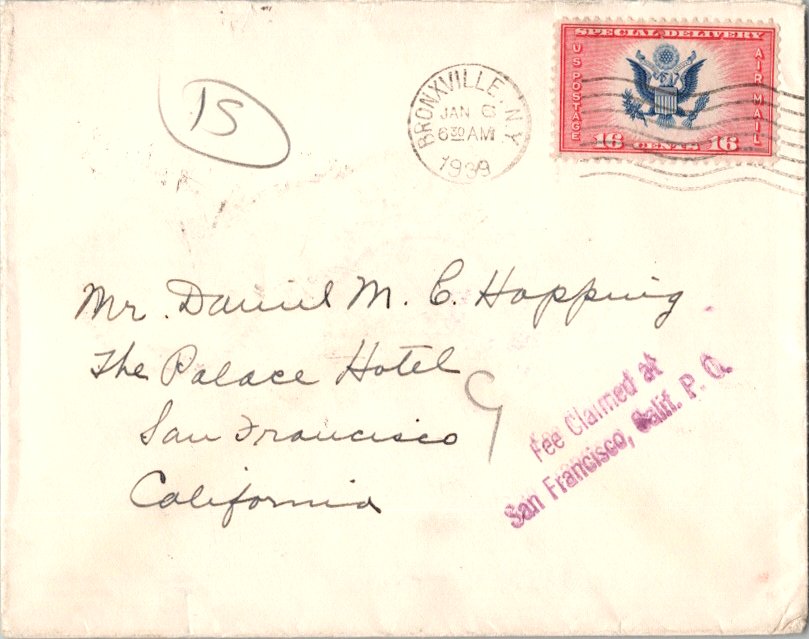 15
BRONXVILLE, N.Y.
JAN 6
6 30 AM
1939
SPECIAL DELIVERY
U S POSTAGE
AIR MAIL
16 CENTS 16
Mr. Daniel M. C. Hopping
The Palace Hotel
San Francisco
California
9
Fee Claimed at
San Francisco, Calif. P. O.